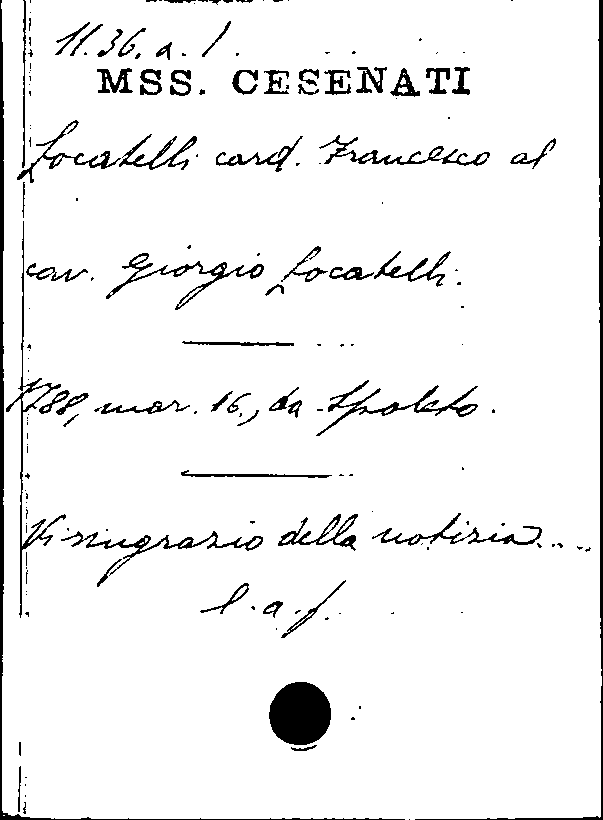 11.36.a.1.
MSS. CESENATI
Locatelli card. Francesco al
cav. Giorgio Locatelli.
1788, mar. 16., da Spoleto.
Vi ringrazio della notizia....
l.a.f.